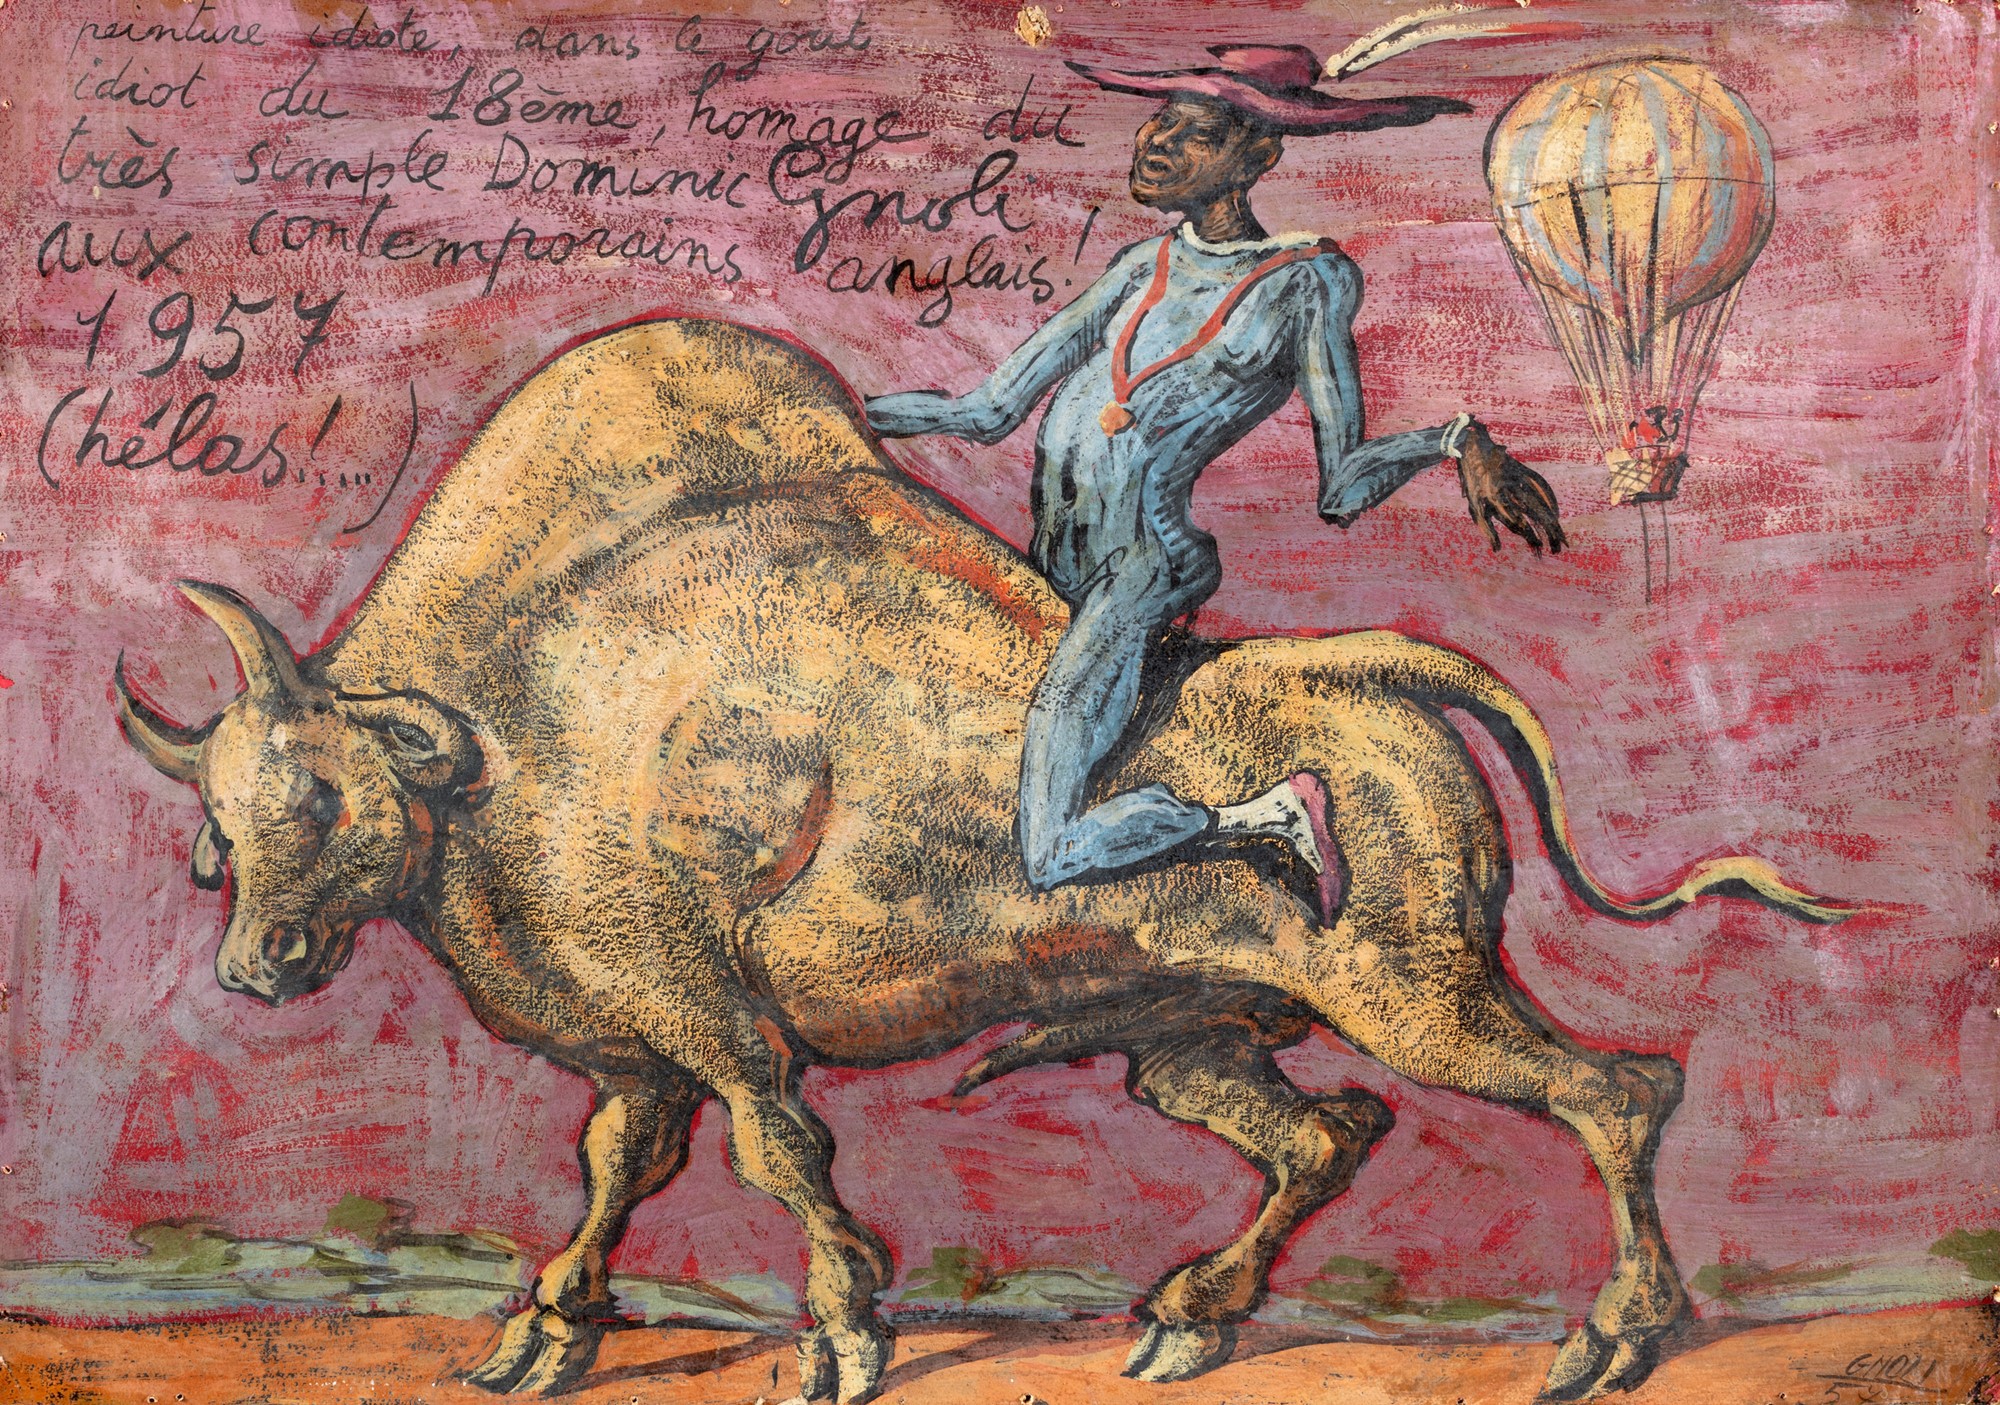 peinture idiote, dans le goût
idiot du 18ème, homage du
très simple Dominic Gnoli
aux contemporains anglais!
1957
(hélas!....)
GNOLI
57